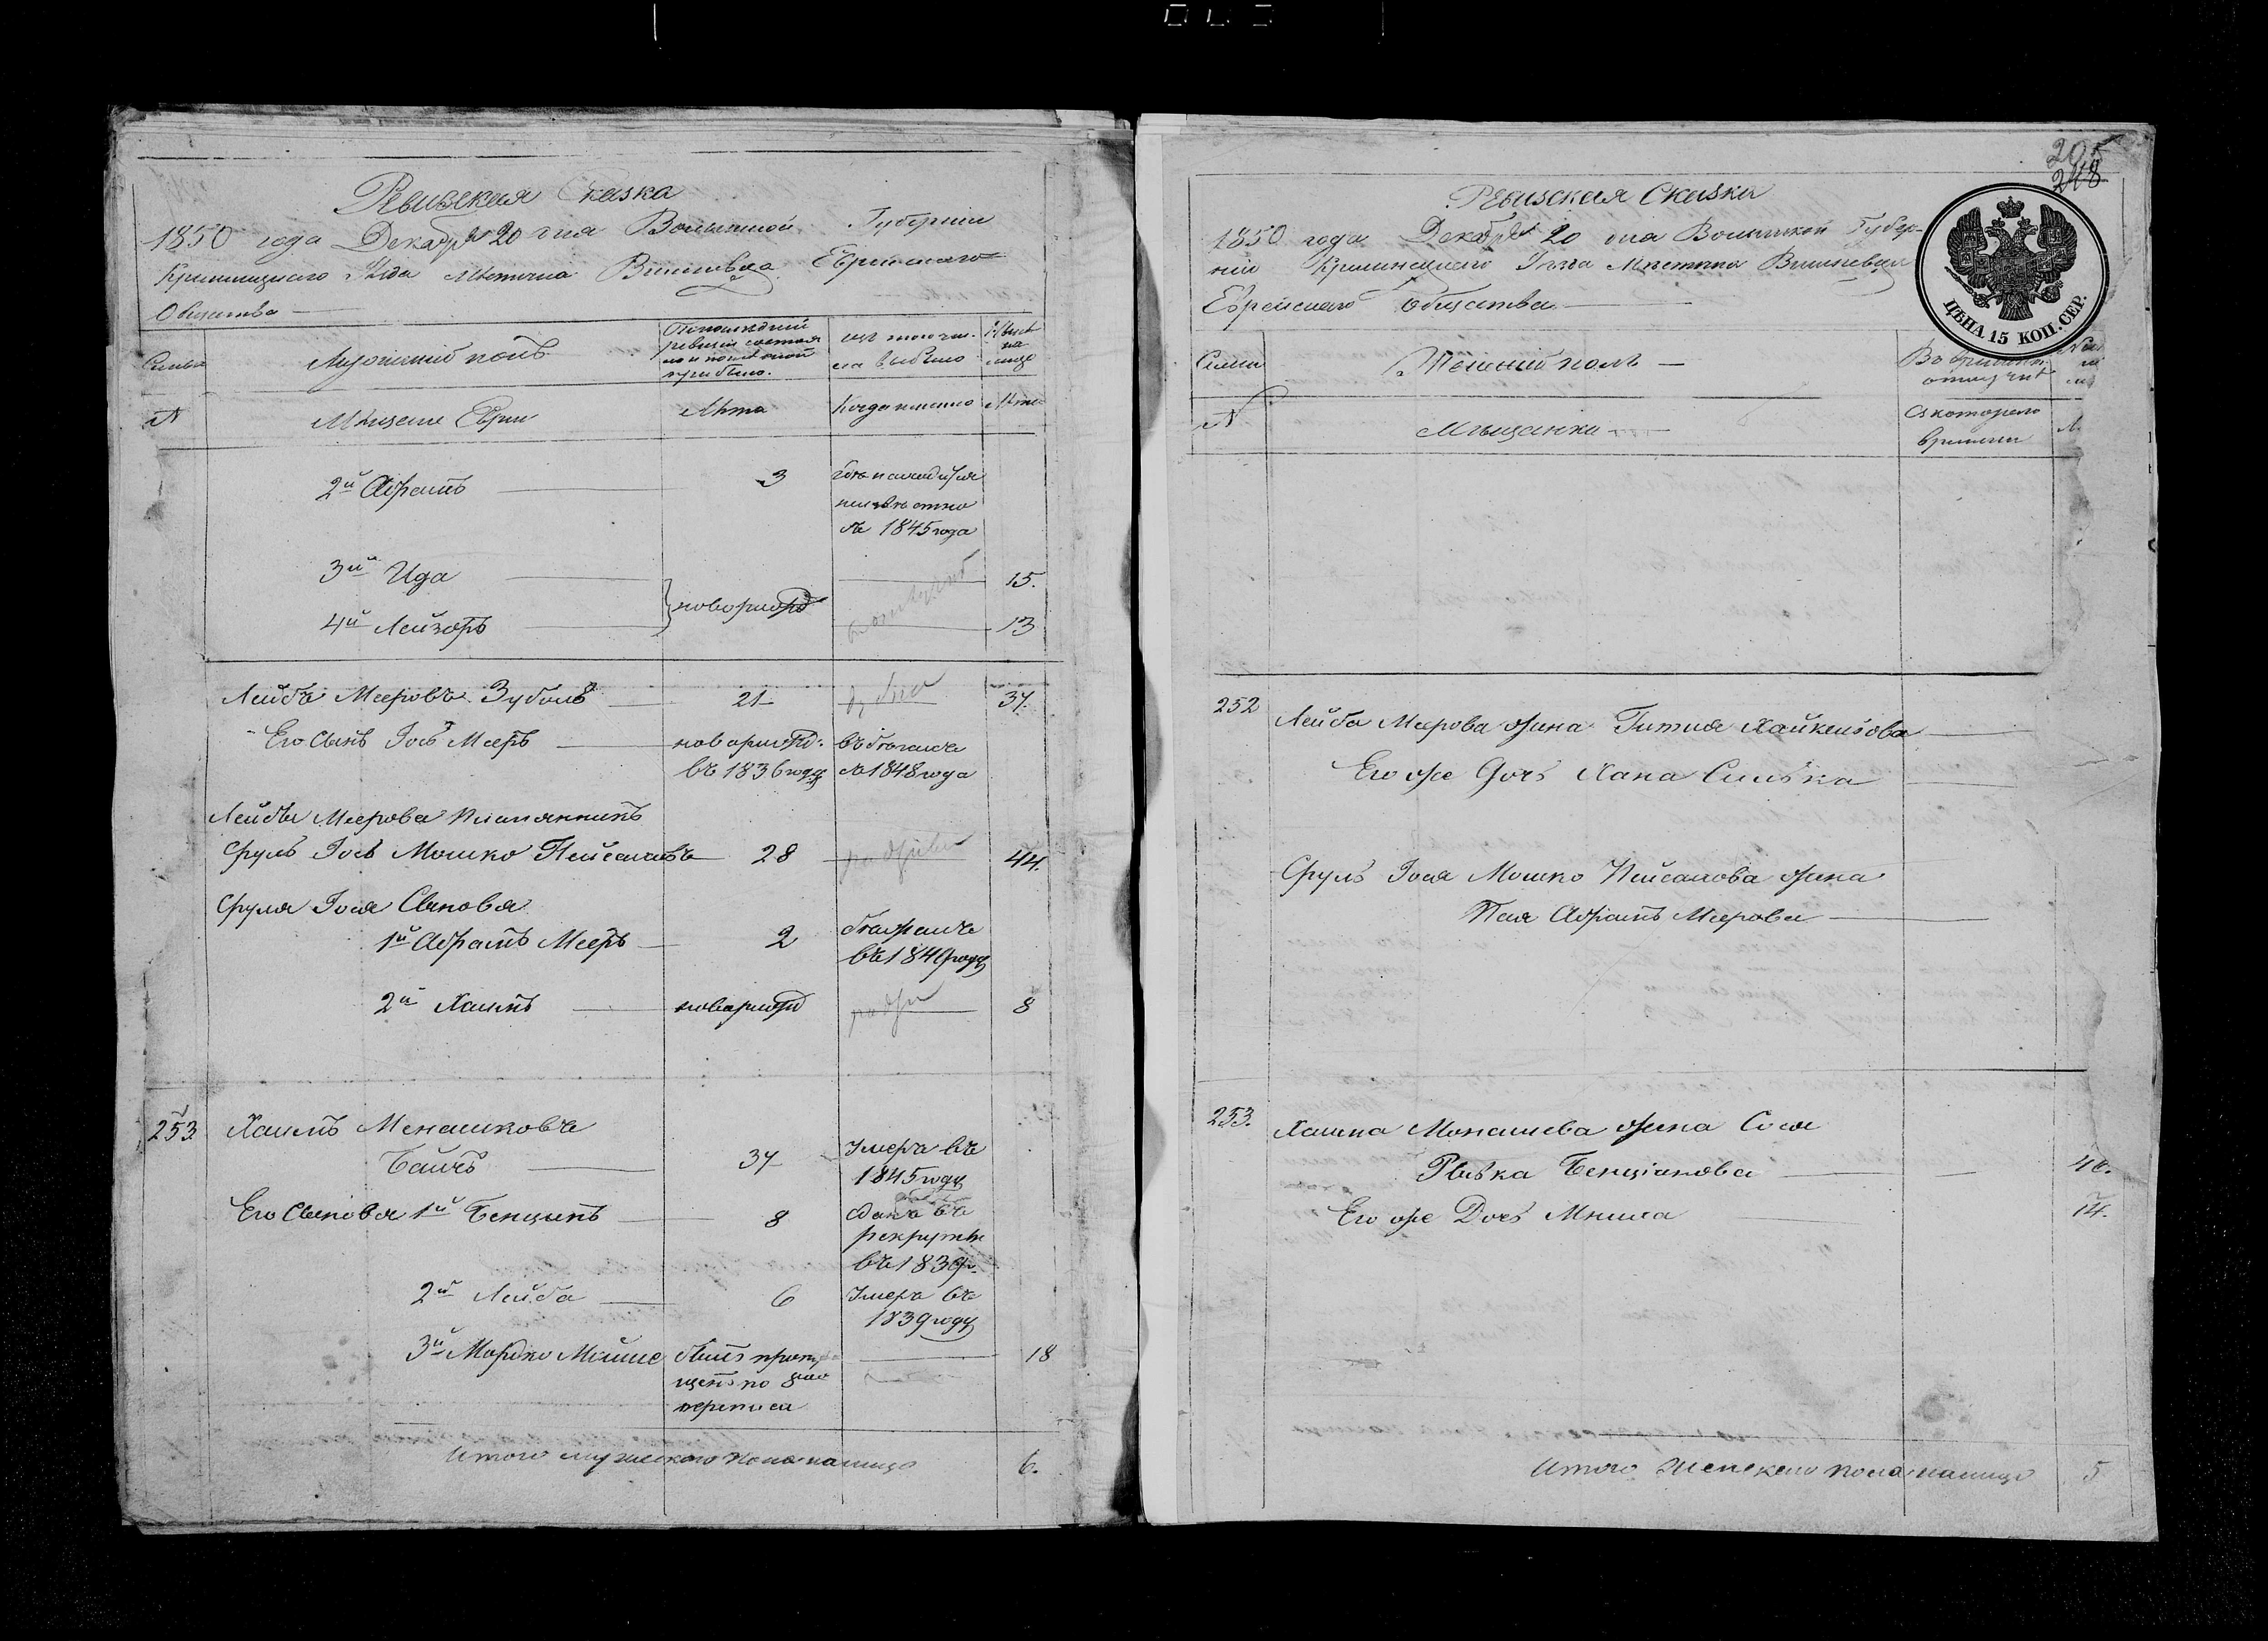 Ревизская Сказка
1850 года Декабря 20 дня Волынской Губернии
Кременецкого Уезда Местечка Вишневца Еврейского
Общества
Семьи
Мужеский полъ
По последней
ревизіи состоя
ло и после оной
прибыло.
изъ того чи
сла выбыло
Ныне
на
лицо
№
Мещане Евреи
Лета
Когда именно
Лета
2й Абрамъ
3
где находится
неизвестно
съ 1845 года
3й Ида
15.
новорожд
4й Лейзоръ
13
Лейба Мееровъ Зуболъ
21
37.
Его Сынъ Іосъ Мееръ
новорожд:
въ 1836 году
въ бегахъ
съ 1848 года
Лейбы Меерова племянникъ
Сруль Іось Мошко Пейсаховъ
28
44.
Сруля Іося Сыновья
1й Абрамъ Мееръ
2
въ 1849 году
2й Хаимъ
новорожд
8
253
Хаимъ Менашковъ
37
Умеръ въ
1845 году
Его Сыновья 1й Бенціонъ
8
сданъ въ
рекруты
въ 1839 г.
2й Лейба
6
Умеръ въ
1839 году
3й Мордко Мойше
былъ пропу
щенъ по 8й
переписи
18
Итого мужеского пола налицо
6.
205
218
Ревизская Сказка
1850 года Декабря 20 дня Волынской Губер-
ніи Кременецкого Уезда Местечка Вишневца
Еврейского Общества
ЦѢНА 15 КОП. СЕР.
Семьи
Женскій полъ
Во временной
отлучке
№
Мещанки
Съ которого
времени
252
Лейбы Меерова жена Гитля Хайкелева
Его же Дочь Хана Сивка
Сруля Іося Мошко Пейсахова жена
Пая Абрамъ Меерова
253.
Хаима Монашева жена Сося
Ривка Бенціонова
40.
Его же Дочь Мнила
14.
Итого Женского пола налицо
5